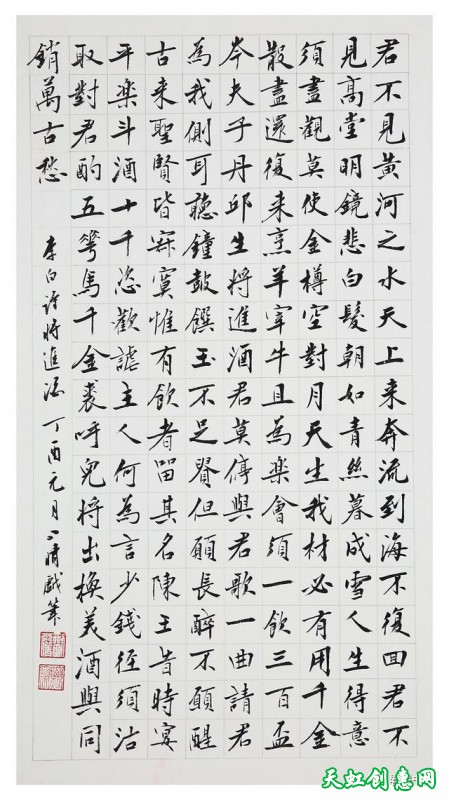 君不見黃河之水天上来奔流到海不復回君不
見高堂明鏡悲白髮朝如青絲暮成雪人生得意
須盡觀莫使金樽空對月天生我材必有用千金
散盡還復来烹羊宰牛且為楽會須一飲三百盃
岑夫子丹邱生將進酒君莫停與君歌一曲請君
為我側耳聽鐘鼓饌玉不足貴但願長醉不願醒
古来聖賢皆寂寞惟有飲者留其名陳王昔時宴
平楽斗酒十千恣歡謔主人何為言少錢径須沽
取對君酌五花馬千金裘呼兒將出換美酒與同
銷萬古愁
李白詩將進酒 丁酉元月 晴戲筆
天虹创意网